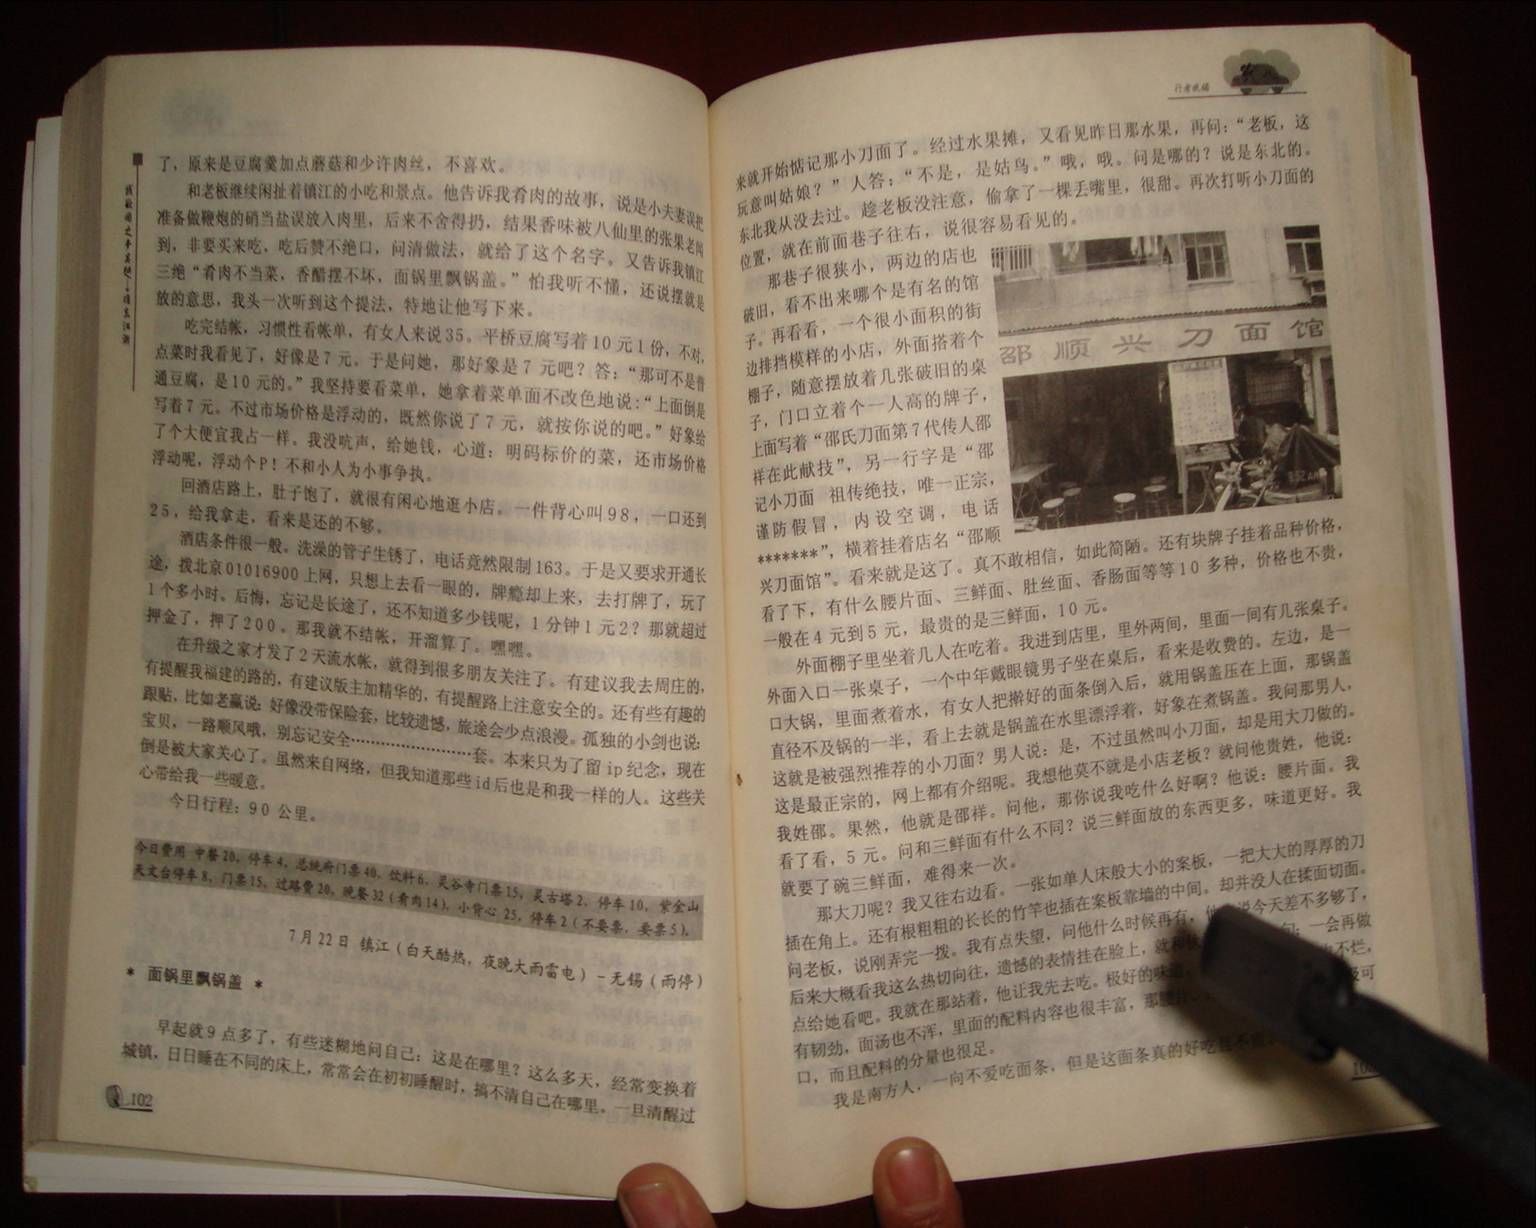 了，原来是豆腐羹加点蘑菇和少许肉丝，不喜欢。
和老板继续闲扯着镇江的小吃和景点。他告诉我肴肉的故事，说是小夫妻误把
准备做鞭炮的硝当盐误放入肉里，后来不舍得扔，结果香味被八仙里的张果老闻
到，非要买来吃，吃后赞不绝口，问清做法，就给了这个名字。又告诉我镇江
三绝“肴肉不当菜，香醋摆不坏，面锅里飘锅盖。”怕我听不懂，还说摆就是
放的意思，我头一次听到这个提法，特地让他写下来。
吃完结帐，习惯性看帐单，有女人来说35。平桥豆腐写着10元1份，不对，
点菜时我看见了，好像是7元。于是问她，那好象是7元吧？答：“那可不是普
通豆腐，是10元的。”我坚持要看菜单，她拿着菜单面不改色地说：“上面倒是
写着7元。不过市场价格是浮动的，既然你说了7元，就按你说的吧。”好象给
了个大便宜我占一样。我没吭声，给她钱，心道：明码标价的菜，还市场价格
浮动呢，浮动个P！不和小人为小事争执。
回酒店路上，肚子饱了，就很有闲心地逛小店。一件背心叫98，一口还到
25，给我拿走，看来是还的不够。
酒店条件很一般。洗澡的管子生锈了，电话竟然限制163。于是又要求开通长
途，拨北京01016900上网，只想上去看一眼的，牌瘾却上来，去打牌了，玩了
1个多小时。后悔，忘记是长途了，还不知道多少钱呢，1分钟1元2？那就超过
押金了，押了200。那我就不结帐，开溜算了。嘿嘿。
在升级之家才发了2天流水帐，就得到很多朋友关注了。有建议我去周庄的，
有提醒我福建的路的，有建议版主加精华的，有提醒路上注意安全的。还有些有趣的
跟贴，比如老赢说：好像没带保险套，比较遗憾，旅途会少点浪漫。孤独的小剑也说：
宝贝，一路顺风哦，别忘记安全…………………套。本来只为了留ip纪念，现在
倒是被大家关心了。虽然来自网络，但我知道那些id后也是和我一样的人。这些关
心带给我一些暖意。
今日行程：90公里。
今日费用 中餐20，停车4，总统府门票40，饮料6，灵谷寺门票15，灵古塔2，停车10，紫金山
天文台停车8，门票15，过路费20，晚餐32（肴肉14），小背心 25，停车2（不要票，要票5）。
7月22日 镇江（白天酷热，夜晚大雨雷电）－无锡（雨停）
* 面锅里飘锅盖 *
早起就9点多了，有些迷糊地问自己：这是在哪里？这么多天，经常变换着
城镇，日日睡在不同的床上，常常会在初初睡醒时，搞不清自己在哪里。一旦清醒过
102
来就开始惦记那小刀面了。经过水果摊，又看见昨日那水果，再问：“老板，这
玩意叫姑娘？”人答：“不是，是姑鸟。”哦，哦。问是哪的？说是东北的。
东北我从没去过。趁老板没注意，偷拿了一棵丢嘴里，很甜。再次打听小刀面的
位置，就在前面巷子往右，说很容易看见的。
那巷子很狭小，两边的店也
破旧，看不出来哪个是有名的馆
子。再看看，一个很小面积的街
边排挡模样的小店，外面搭着个
棚子，随意摆放着几张破旧的桌
子，门口立着个一人高的牌子，
上面写着“邵氏刀面第7代传人邵
祥在此献技”，另一行字是“邵
记小刀面 祖传绝技，唯一正宗，
谨防假冒，内设空调，电话
*******”，横着挂着店名“邵顺
兴刀面馆”。看来就是这了。真不敢相信，如此简陋。还有块牌子挂着品种价格，
看了下，有什么腰片面、三鲜面、肚丝面、香肠面等等10多种，价格也不贵，
一般在4元到5元，最贵的是三鲜面，10元。
邵顺兴刀面馆
外面棚子里坐着几人在吃着。我进到店里，里外两间，里面一间有几张桌子。
外面入口一张桌子，一个中年戴眼镜男子坐在桌后，看来是收费的。左边，是一
口大锅，里面煮着水，有女人把擀好的面条倒入后，就用锅盖压在上面，那锅盖
直径不及锅的一半，看上去就是锅盖在水里漂浮着，好象在煮锅盖。我问那男人，
这就是被强烈推荐的小刀面？男人说：是，不过虽然叫小刀面，却是用大刀做的。
这是最正宗的，网上都有介绍呢。我想他莫不就是小店老板？就问他贵姓，他说：
我姓邵。果然，他就是邵祥。问他，那你说我吃什么好啊？他说：腰片面。我
看了看，5元。问和三鲜面有什么不同？说三鲜面放的东西更多，味道更好。我
就要了碗三鲜面，难得来一次。
那大刀呢？我又往右边看。一张如单人床般大小的案板，一把大大的厚厚的刀
插在角上。还有根粗粗的长长的竹竿也插在案板靠墙的中间。却并没人在揉面切面。
问老板，说刚弄完一拨。我有点失望，问他什么时候再有，他说今天差不多够了，
后来大概看我这么热切向往，遗憾的表情挂在脸上，就 一会再做
点给她看吧。我就在那站着，他让我先去吃。极好的味道， 不烂，
有韧劲，面汤也不浑，里面的配料内容也很丰富，那 可
口，而且配料的分量也很足。
我是南方人，一向不爱吃面条，但是这面条真的好吃